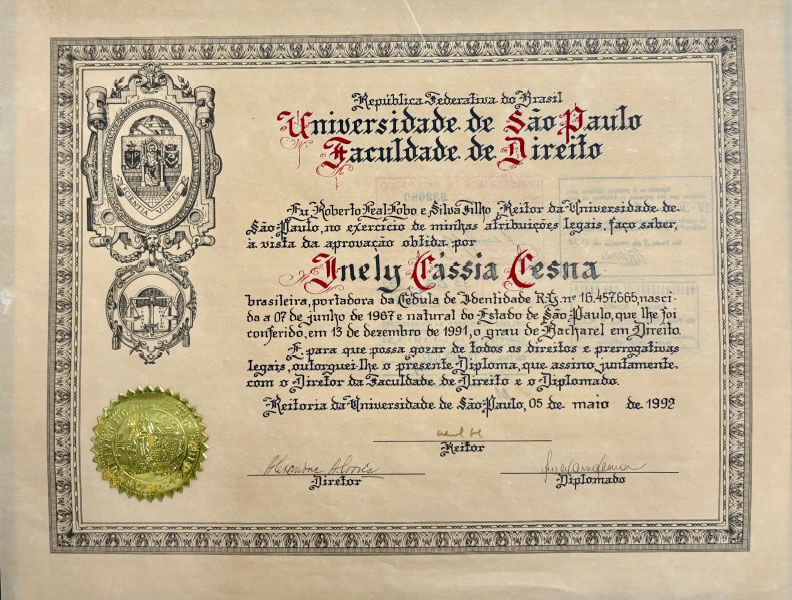 República Federativa do Brasil
Universidade de São Paulo
Faculdade de Direito
SCIENTIA VINCES
Eu, Roberto Leal Lobo e Silva Filho, Reitor da Universidade de
São Paulo, no exercício de minhas atribuições legais, faço saber,
à vista da aprovação obtida por
Inely Cássia Cesna
brasileira, portadora da Cédula de Identidade R.G. nº 16.457.665, nasci-
da a 07 de junho de 1967 e natural do Estado de São Paulo, que lhe foi
conferido, em 13 de dezembro de 1991, o grau de Bacharel em Direito.
E para que possa gozar de todos os direitos e prerrogativas
legais, outorguei-lhe o presente Diploma, que assino, juntamente
com o Diretor da Faculdade de Direito e o Diplomado.
Reitoria da Universidade de São Paulo, 05 de maio de 1992
Reitor
Diretor
Diplomado